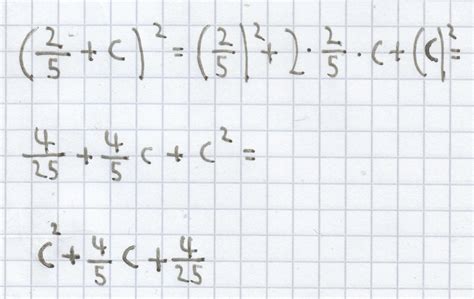 (2/5 + c)² = (2/5)² + 2 · 2/5 · c + (c)² =
4/25 + 4/5 c + c² =
c² + 4/5 c + 4/25